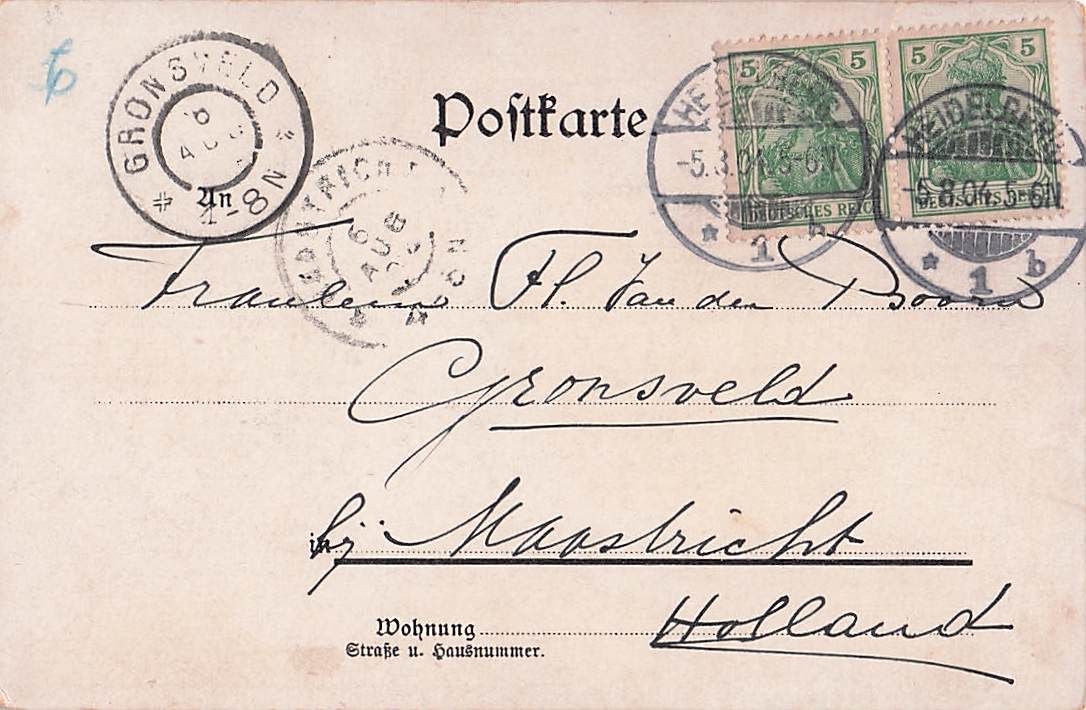 GRONSVELD
6
AUG
4-8N
Postkarte
5 5
DEUTSCHES REICH
5 5
DEUTSCHES
HEIDELBERG
-5.8.04.5-6N
* 1 b
HEIDELBERG
-5.8.04.5-6N
* 1 b
An
6 AUG
Fraulein Fl. Van den Boorn
Gronsveld
in bij Maastricht
Holland
Wohnung
Straße u. Hausnummer.